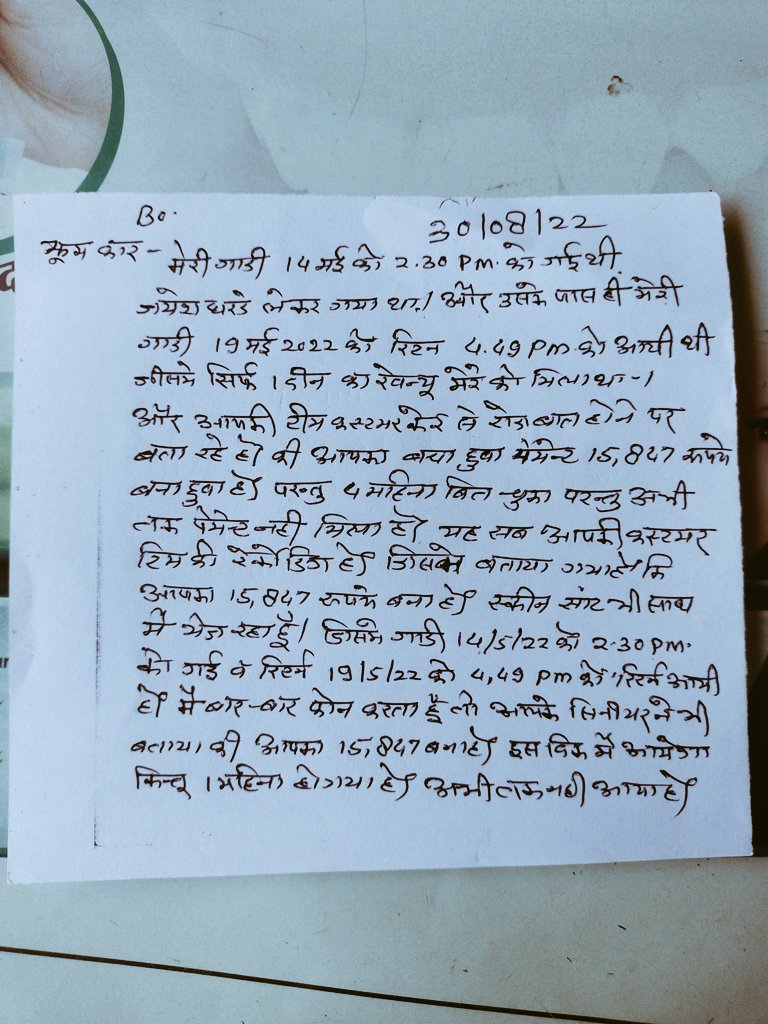 Bo.
30/08/22
झूम कार - मेरी गाडी 14 मई को 2.30 PM. को गई थी.
लेकर गया था। और उसके पास ही मेरी
गाडी 19 मई 2022 को रिटन 4.49 PM. को आयी थी
जीसमे सिर्फ 1 दीन का रेवन्यू मेरे को मिला था -।
और आपकी टीम कस्टमर केर से रोज बात होने पर
बता रहे है की आपका बचा हुवा पेमेन्ट 15,847 रूपये
बना हुवा है परन्तु 4 महिना बित चुका परन्तु अभी
तक पेमेन्ट नही मिला है यह सब आपकी कस्टमर
टिम की रेकोडिंग है जिसमे बताया गया है कि
आपका 15,847 रूपये बना है स्कीन सांट भी साथ
में भेज रहा हूँ। जिसमे गाडी 14/5/22 को 2.30 PM.
को गई व रिटर्न 19/5/22 को 4,49 PM को रिटर्न आयी
है मै बार-बार फोन करता हूँ तो आपके सिनीयर ने भी
बताया की आपका 15,847 बना है इस विक में आयेगा
किन्तू 1 महिना हो गया है अभी तक नही आया है